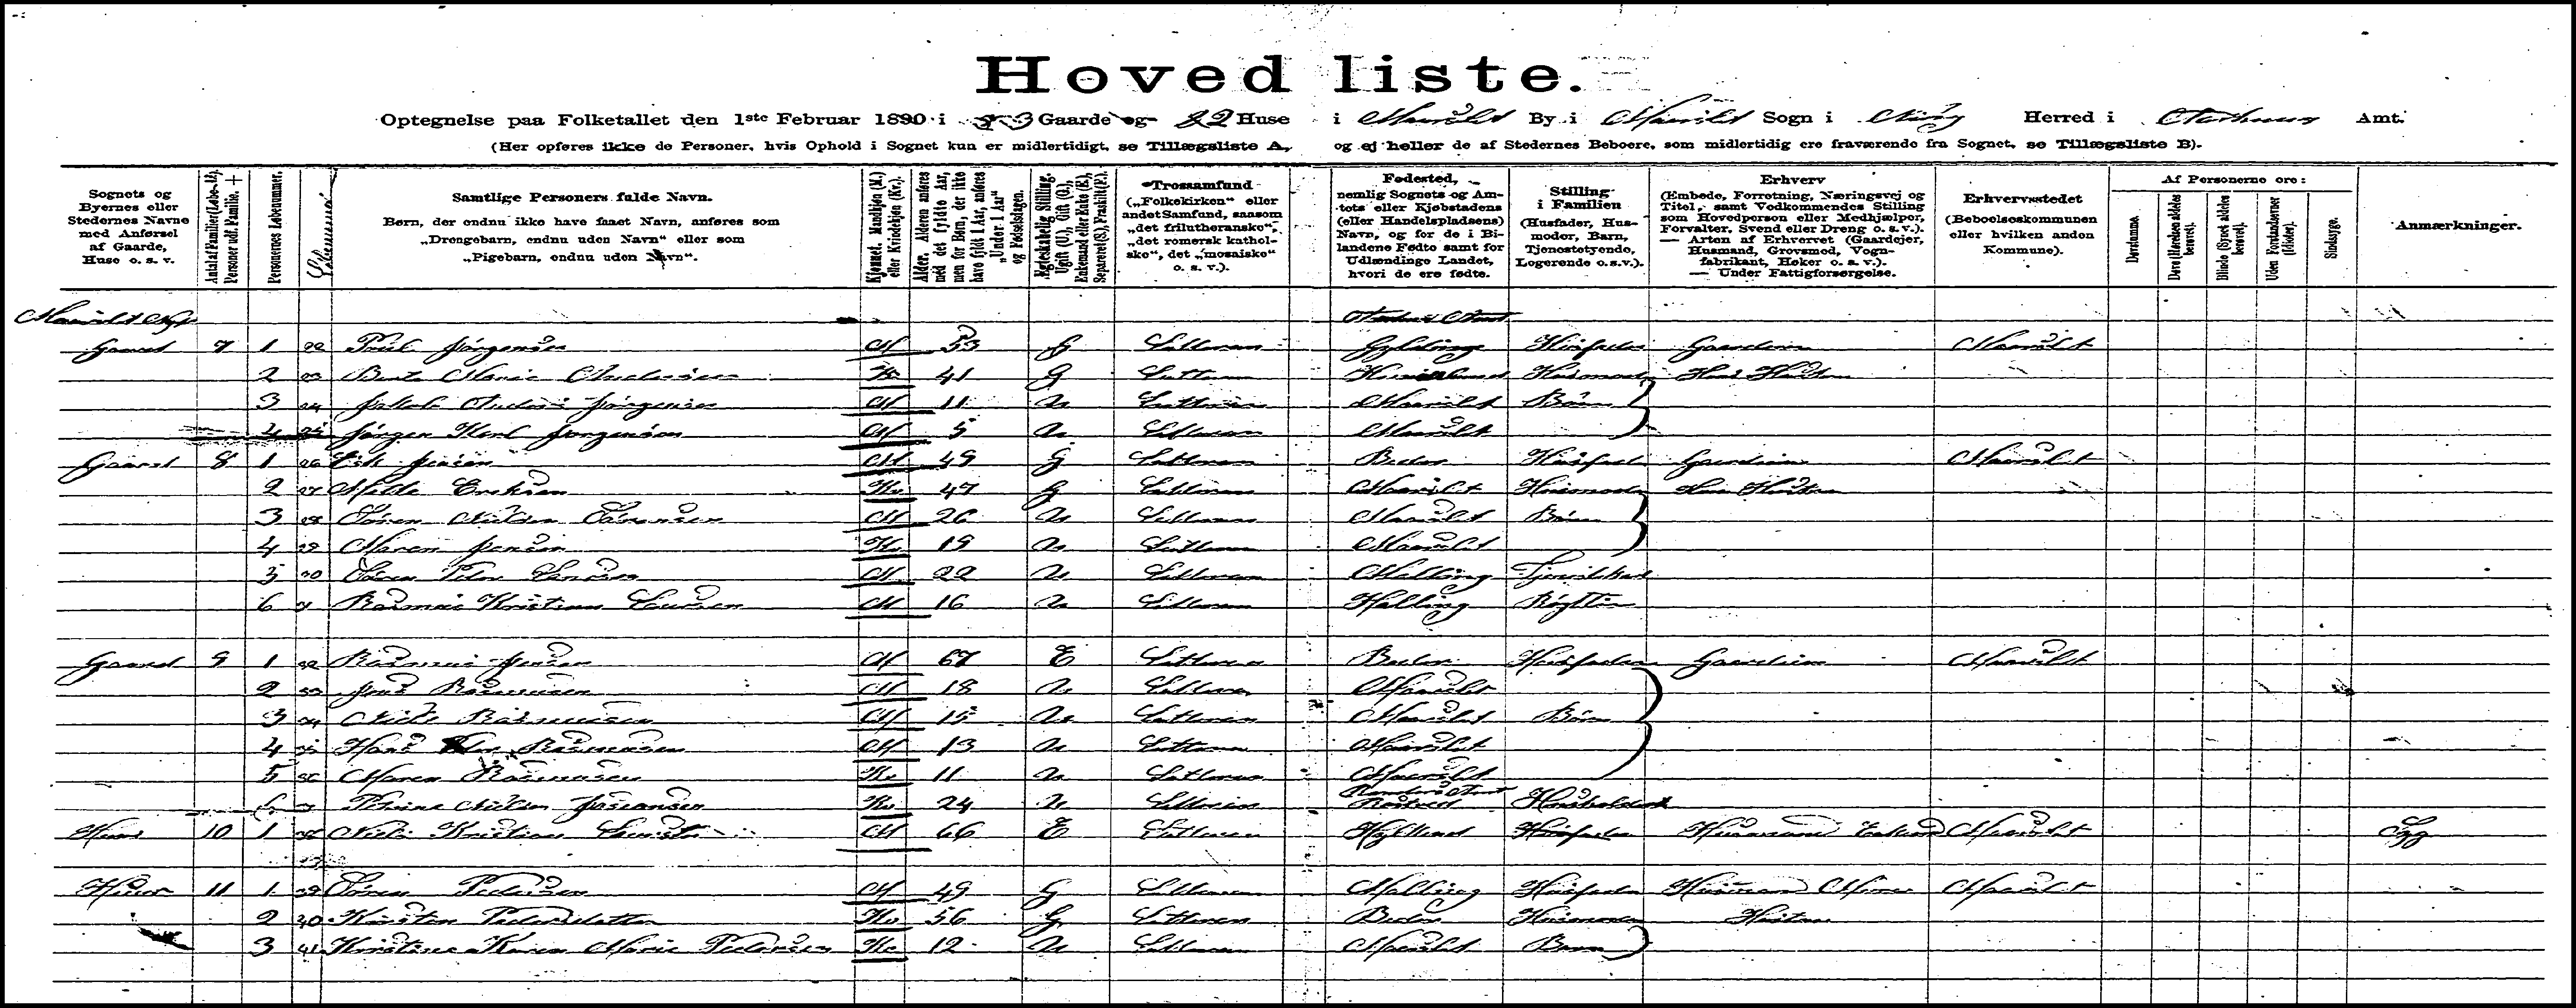 Hoved liste.
Optegnelse paa Folketallet den 1ste Februar 1890 i 23 Gaarde og 22 Huse i Maarslet By i Maarslet Sogn i Ning Herred i Aarhuus Amt.
(Her opføres ikke de Personer, hvis Ophold i Sognet kun er midlertidigt, se Tillægsliste A, og ej heller de af Stedernes Beboere, som midlertidig ere fraværende fra Sognet, se Tillægsliste B).
Sognets og Byernes eller Stedernes Navne med Anførsel af Gaarde, Huse o. s. v.
Personernes Løbenummer.
Samtlige Personers fulde Navn.
Børn, der endnu ikke have faaet Navn, anføres som „Drengebarn, endnu uden Navn“ eller som „Pigebarn, endnu uden Navn“.
Kjønnet. Mandkjøn (M.) eller Kvindekjøn (Kv.).
Alder. Alderen anføres med det fyldte Aar, men for Børn, der ikke have fyldt 1 Aar, anføres „Under 1 Aar“ og Fødselsdagen.
Ægteskabelig Stilling. Ugift (U.), Gift (G.), Enkemand eller Enke (E.), Separeret (S.), Fraskilt (F.).
Trossamfund („Folkekirken“ eller andet Samfund, saasom „det frilutheranske“, „det romersk katholske“, det „mosaiske“ o. s. v.).
Fødested, nemlig Sognets og Amtets eller Kjøbstadens (eller Handelspladsens) Navn, og for de i Bilandene Fødte samt for Udlændinge Landet, hvori de ere fødte.
Stilling i Familien (Husfader, Husmoder, Barn, Tjenestetyende, Logerende o.s.v.).
Erhverv (Embede, Forretning, Næringsvej og Titel, samt Vedkommendes Stilling som Hovedperson eller Medhjælper, Forvalter, Svend eller Dreng o. s. v.). — Arten af Erhvervet (Gaardejer, Husmand, Grovsmed, Vognfabrikant, Høker o. s. v.). — Under Fattigforsørgelse.
Erhvervsstedet (Beboelseskommunen eller hvilken anden Kommune).
Af Personerne ere:
Døvstumme.
Døve (Hørelsen aldeles berøvet).
Blinde (Synet aldeles berøvet).
Uden Forstandsevner (Idioter).
Sindssyge.
Anmærkninger.
Gaard 7 1 22 Poul Jørgensen M 53 G Luthersk Gylling Husfader Gaardeier Maarslet
2 23 Bente Marie Andersen Kv 41 G Luthersk Husmoder Hans Hustru
3 24 Jakob Anders Jørgensen M 11 U Luthersk Maarslet Børn
4 25 Jørgen Karl Jørgensen M 5 U Luthersk Maarslet
Gaard 8 1 26 Jensen M 49 G Luthersk Beder Husfader Gaardeier Maarslet
2 27 Mette Eriksen Kv 47 G Luthersk Maarslet Husmoder Hans Hustru
3 28 Søren M 26 U Luthersk Maarslet Børn
4 29 Maren Jensen Kv 19 U Luthersk Maarslet
5 30 Søren Peter M 22 U Luthersk Malling Tjenestekarl
6 31 Rasmus Kristian Laursen M 16 U Luthersk Malling Røgter
Gaard 9 1 32 Rasmus Jensen M 67 E Luthersk Beder Husfader Gaardeier Maarslet
2 33 Jens Rasmussen M 18 U Luthersk Maarslet
3 34 Niels Rasmussen M 15 U Luthersk Maarslet Børn
4 35 Hans Rasmussen M 13 U Luthersk Maarslet
5 36 Maren Rasmussen Kv 11 U Luthersk Maarslet
6 37 Nielsen Kv 24 U Luthersk Randers Amt
Huus 10 1 38 Niels Kristian M 66 E Luthersk Husfader Husmand Maarslet
Huus 11 1 39 Søren Pedersen M 49 G Luthersk Malling Husfader Husmand Maarslet
2 40 Kirsten Pedersdatter Kv 56 G Luthersk Beder Husmoder Hustru
3 41 Kirstine Karen Marie Pedersen Kv 12 U Luthersk Maarslet Barn